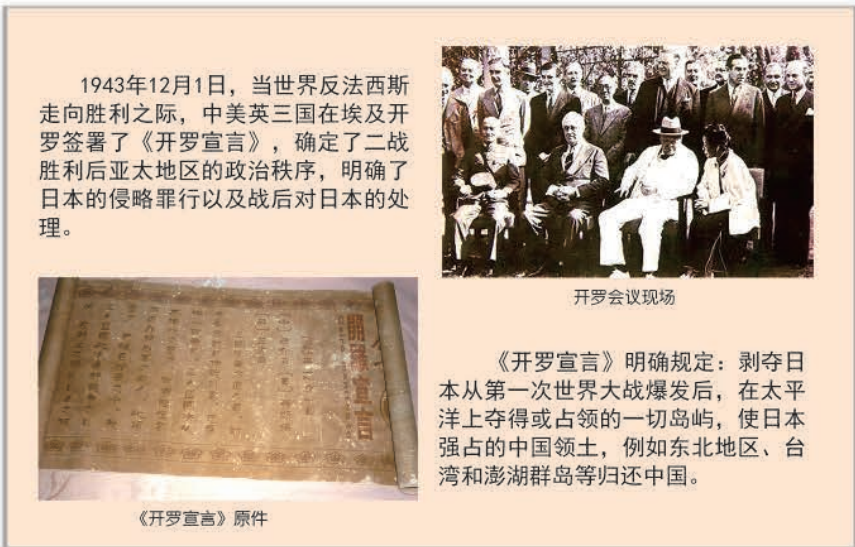 1943年12月1日，当世界反法西斯
走向胜利之际，中美英三国在埃及开
罗签署了《开罗宣言》，确定了二战
胜利后亚太地区的政治秩序，明确了
日本的侵略罪行以及战后对日本的处
理。
开罗会议现场
開羅宣言
《开罗宣言》原件
《开罗宣言》明确规定：剥夺日
本从第一次世界大战爆发后，在太平
洋上夺得或占领的一切岛屿，使日本
强占的中国领土，例如东北地区、台
湾和澎湖群岛等归还中国。